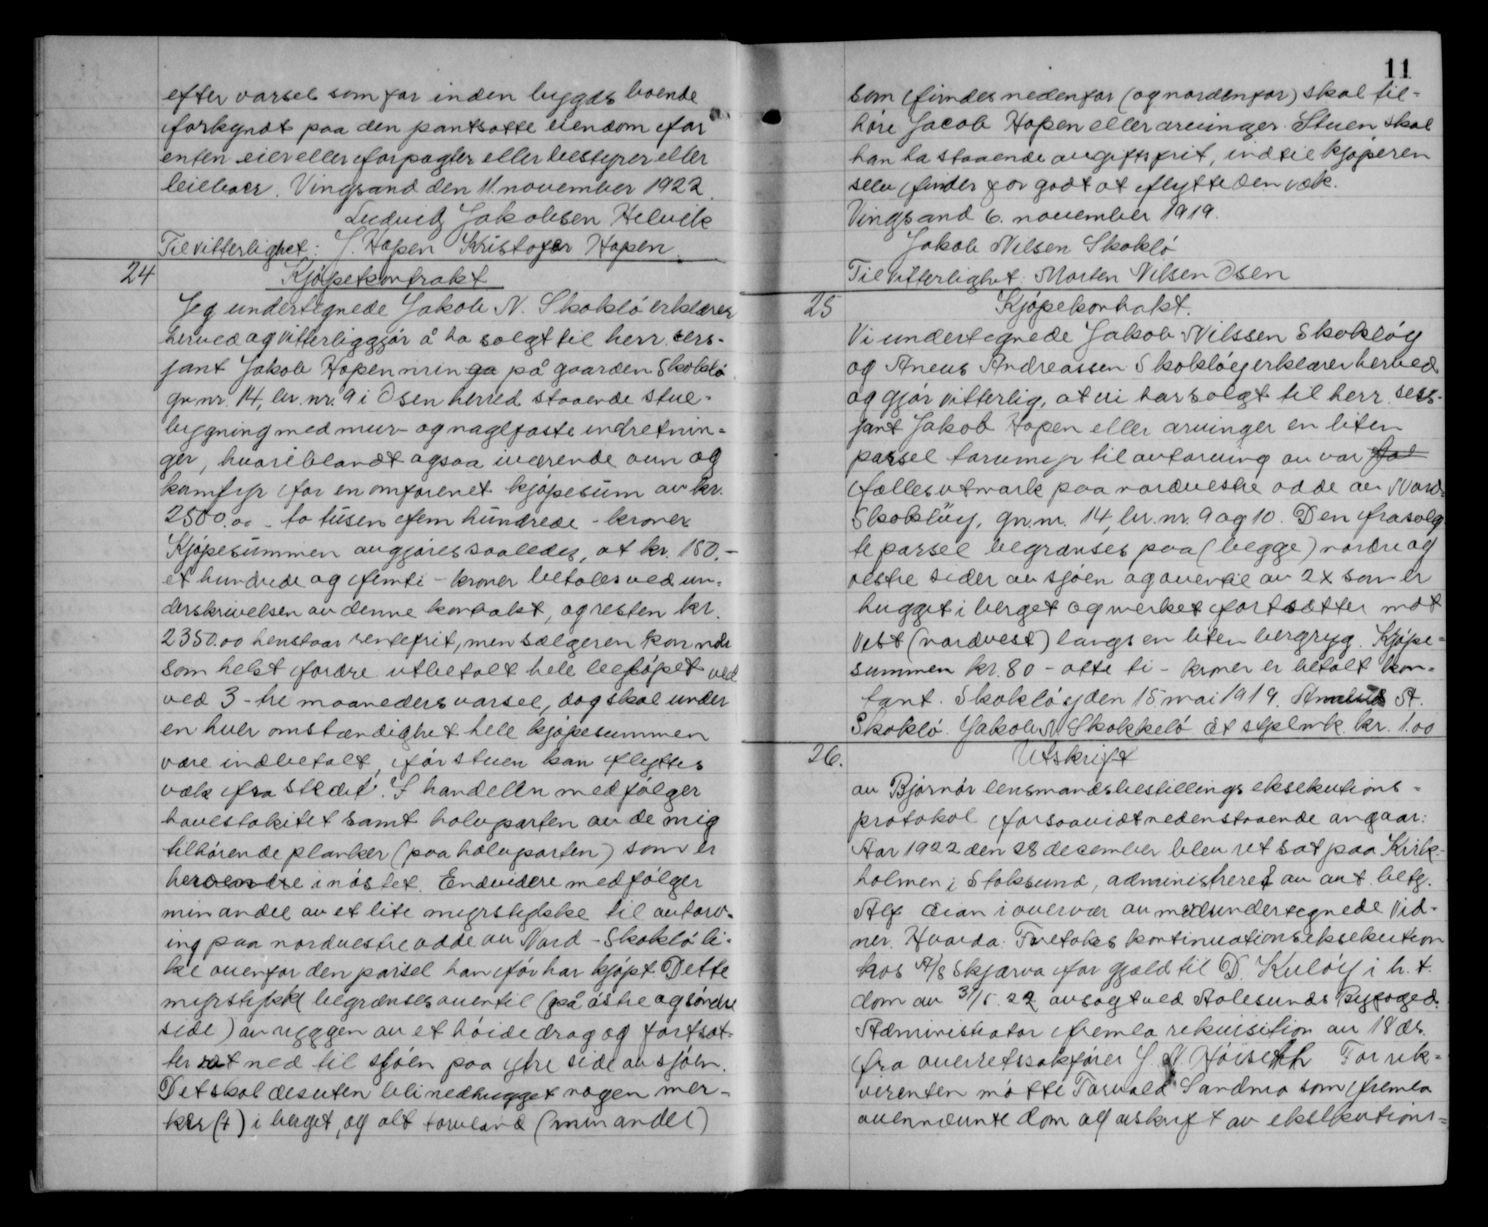 efter varsel som for inden bygds boende
forkyndt paa den pantsatte eiendom for
enten eier eller forpagter eller bestyrer eller
leieboer. Vingsand den 11. november 1922.
Ludvig Jakobsen Helvik
Til vitterlighet: J. Hopen Kristofer Hopen.
24 Kjøpekontrakt
Jeg undertegnede Jakob N. Skokló erklærer
herved og vitterliggjör å ha solgt til herr sers-
jant Jakob Hopen min på gaarden Skokló
gr. nr. 14, br. nr. 9 i Osen herred staaende stue-
bygning med mur- og naglfaste indretnin-
ger, hvoriblandt ogsaa iværende ovn og
komfyr for en omforenet kjöpesum av kr.
2500.00 - to tusen fem hundrede - kroner
Kjöpesummen avgjöres saaledes, at kr. 150.-
et hundrede og femti - kroner betales ved un-
derskrivelsen av denne kontrakt, og resten kr.
2350.00 henstaar rentefrit, men sælgeren kan naar
som helst fordre utbetalt hele belöpet ved
ved 3 - tre maaneders varsel, dog skal under
en hver omstændighet hele kjöpesummen
være indbetalt, för stuen kan flyttes
væk fra stedet. I handelen medfölger
havestakitet samt halvparten av de mig
tilhörende planker (paa halvparten) som er
i nöstet. Endvidere medfölger
min andel av et lite myrstykke til avtorv-
ing paa nordvestre odde av Nord-Skokló li-
ke ovenfor den parsel han för har kjöpt. Dette
myrstykke begrænses oventil (på östre og söndre
side) av ryggen av et höidedrag og fortsæt-
ter ret ned til sjöen paa ytre side av sjöen.
Det skal desuten bli nedhugget nogen mer-
ker (+) i berget, og alt torvland (min andel)
11
som findes nedenfor (og nordenfor) skal til-
höre Jacob Hopen eller arvinger. Stuen skal
han ha staaende avgiftsfrit, indtil kjöperen
selv finder for godt at flytte den væk.
Vingsand 6. november 1919.
Jakob Nilsen Skokló
Til vitterlighet: Morten Nilsen Osen
25 Kjöpekontrakt.
Vi undertegnede Jakob Nilssen Skoklöy
og Aneus Andreassen Skoklöy erklærer herved
og gjör vitterlig, at vi har solgt til herr sers-
jant Jakob Hopen eller arvinger en liten
parsel torvmyr til avtorving av vor
fælles utmark paa nordvestre odde av Nord-
Skoklöy, gr. nr. 14, br. nr. 9 og 10. Den frasolg-
te parsel begrænses paa (begge) nordre og
vestre sider av sjöen og oventil av 2 x som er
hugget i berget og merket fortsætter mot
vest (nordvest) langs en liten bergryg. Kjöpe-
summen kr. 80 - otte ti - kroner er betalt kon-
tant. Skoklöy den 15 mai 1919. A.
Skokló. Jakob N Skokkeló Et stplmk. kr. 1.00
26. Utskrift
av Björnör lensmandsbestillings eksekutions-
protokol forsaavidt nedenstaaende angaar:
Aar 1922 den 28 december blev ret sat paa Kirk-
holmen i Stoksund, administreret av aut. betj.
Alf Eian i overvær av medundertegnede vid-
ner. Hvorda: Foretokes kontinuationseksekution
hos A/S Skjærva for gjæld til D. Kulöy i h. t.
dom av 31/5. 22 avsagt ved Aalesunds Byfoged.
Administrator fremla rekvisition av 18 ds.
fra overretssakförer J. N. Höiseth For rek-
virenten mötte Torvald Sandmo som fremla
ovennævnte dom og avskrift av eksekutions-